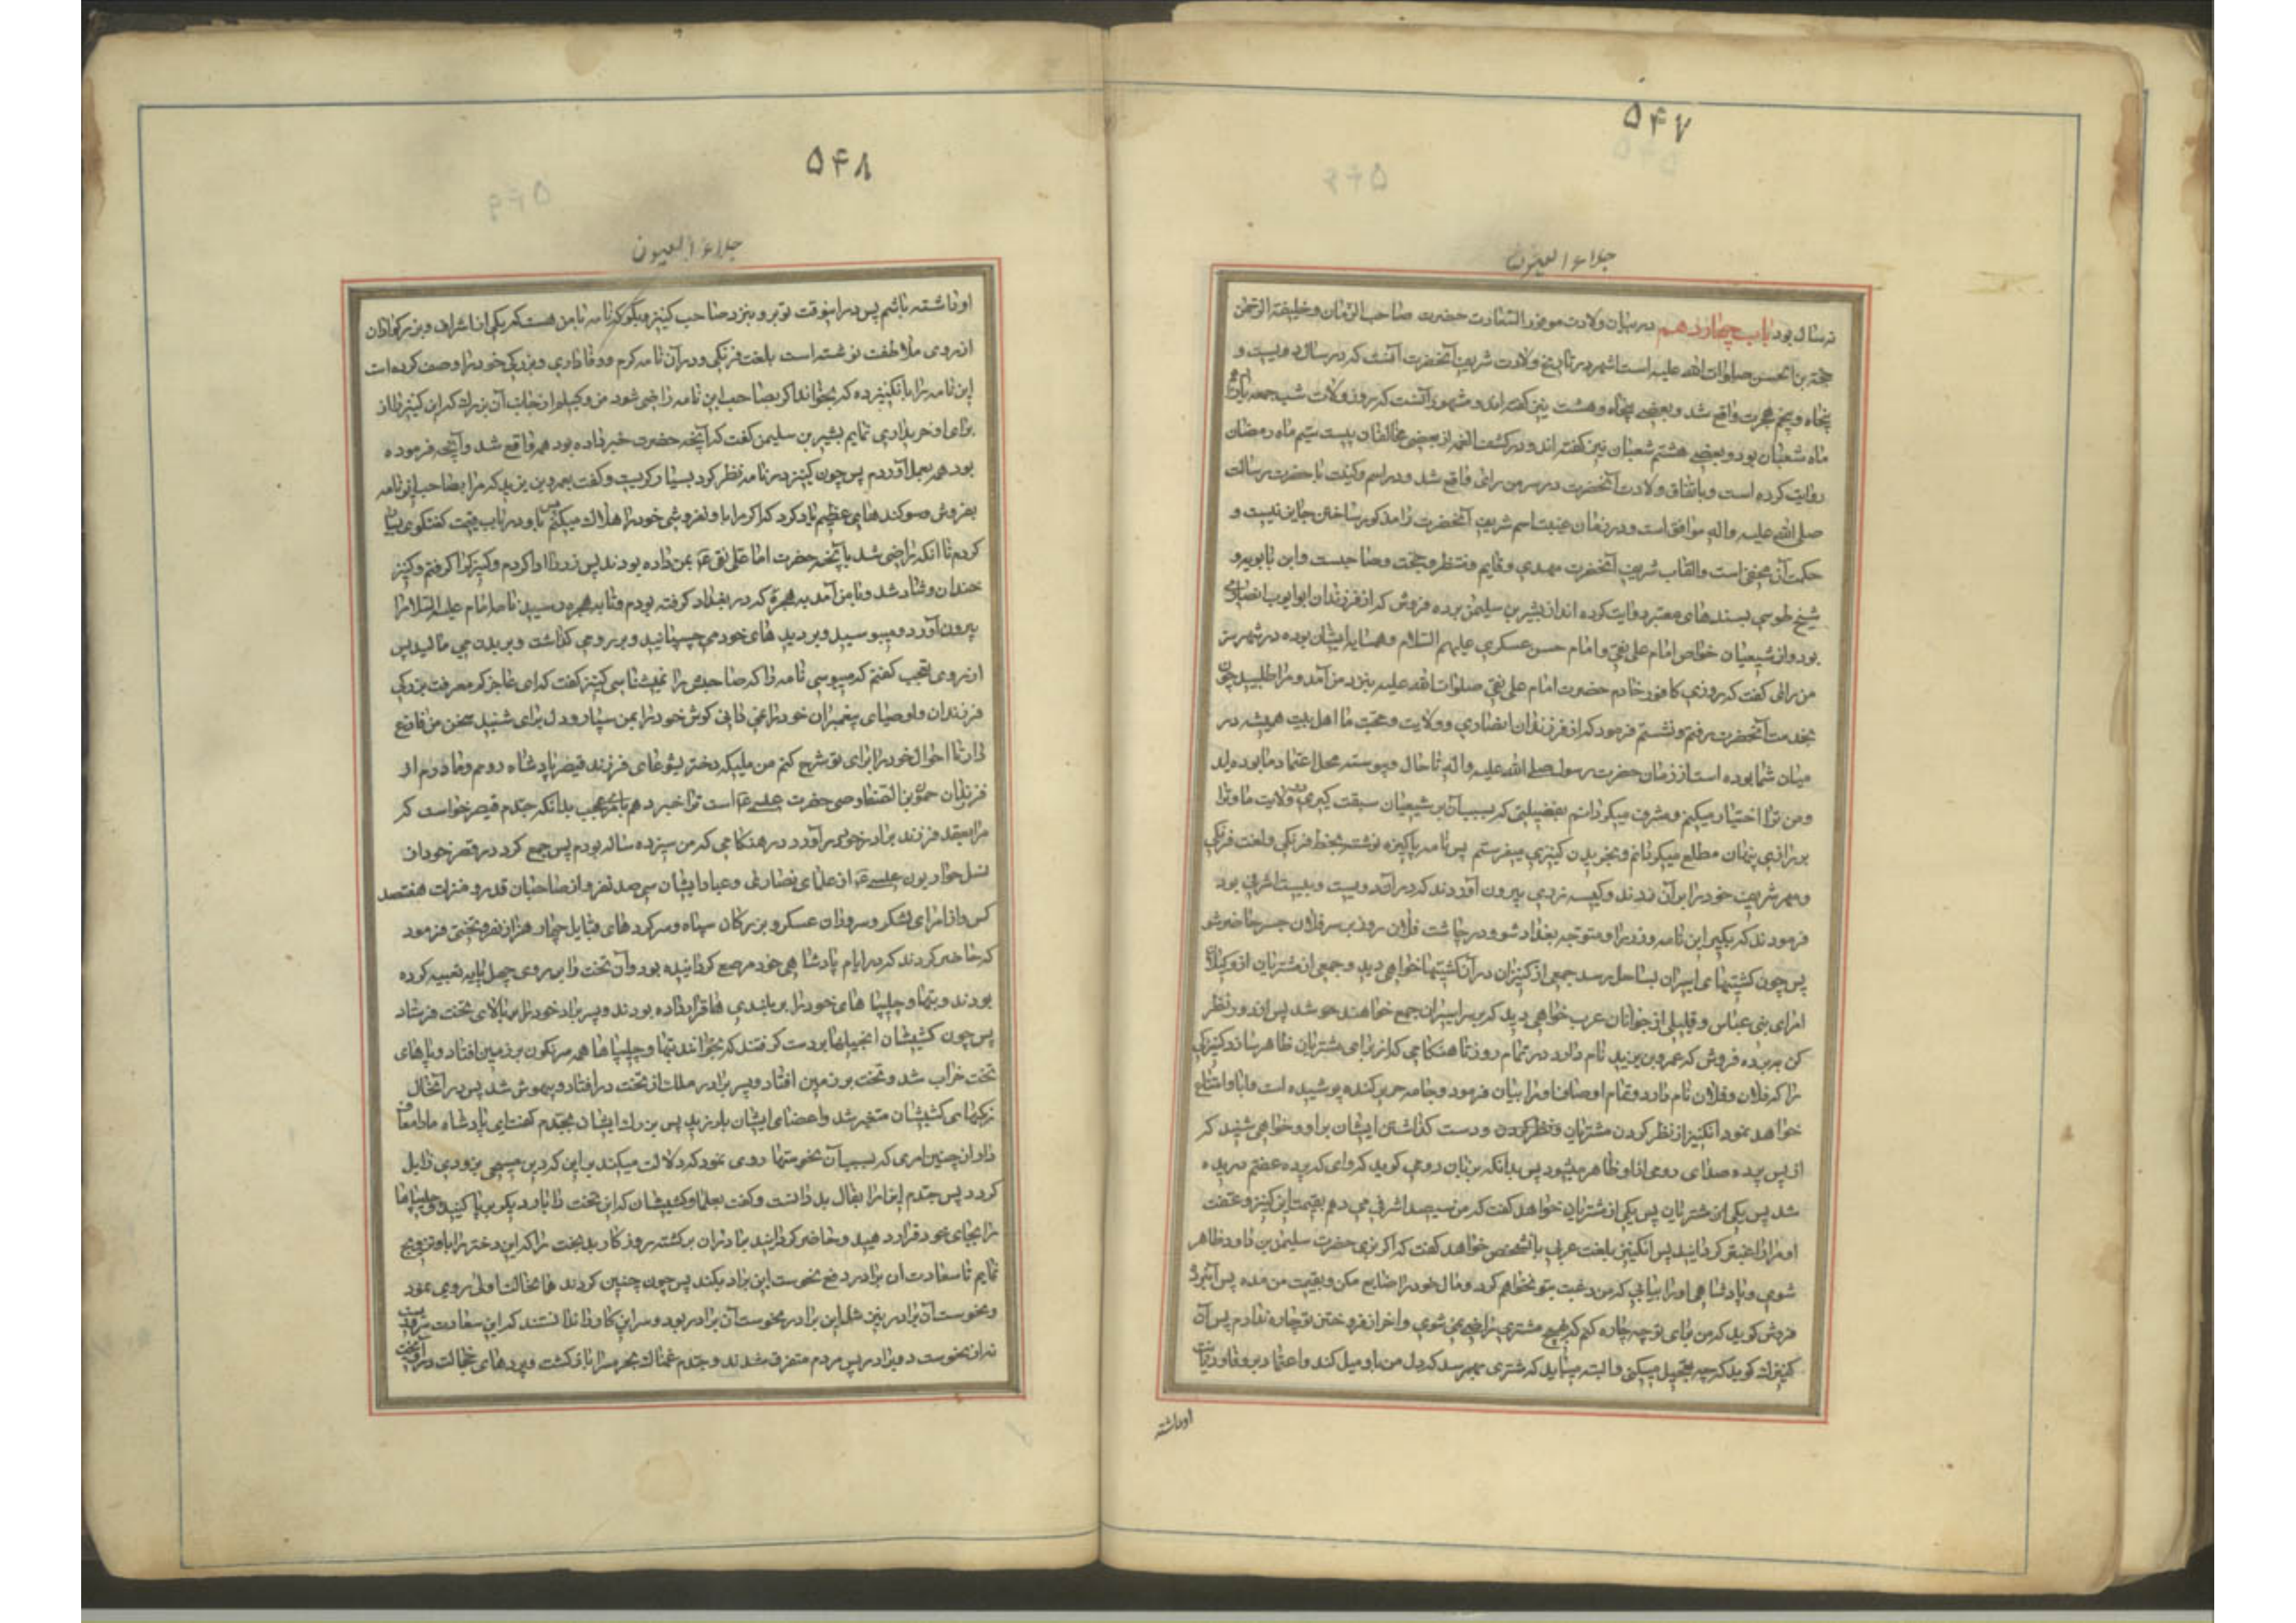 ۵۴۷
جلاء العیون
نه سال بود باب چهاردهم در بیان ولادت موفور السعادت حضرت صاحب الزمان و خلیفة الرحمن
حجة بن الحسن صلوات الله علیه است اشهر در تاریخ ولادت شریف آنحضرت آنست که در سال دویست و
پنجاه و پنجم هجرت واقع شد و بعضی پنجاه و هشت نیز گفته اند و مشهور آنست که روز ولادت شب جمعه پانزدهم
ماه شعبان بود و بعضی هشتم شعبان نیز گفته اند و در کشف الغمه از بعضی مخالفان بیست سیم ماه رمضان
روایت کرده است و باتفاق ولادت آنحضرت در سر من رای واقع شد و در اسم و کنیت با حضرت رسالت
صلی الله علیه و اله موافق است و در زمان غیبت اسم شریف آنحضرت را مذکور ساختن جایز نیست و
حکمت آن مخفی است و القاب شریف آنحضرت مهدی و قایم و منتظر و حجت و صاحبست و ابن بابویه و
شیخ طوسی بسندهای معتبر روایت کرده اند از بشیر بن سلیمن برده فروش که از فرزندان ابو ایوب انصاری
بود و از شیعیان خواص امام علی نقی و امام حسن عسکری علیهم السلام و همسایه ایشان بوده در شهر سر
من رای گفت که روزی کافور خادم حضرت امام علی نقی صلوات الله علیه بنزد من آمد و مرا طلبید چون
بخدمت آنحضرت رفتم و نشستم فرمود که از فرزندان انصاری و ولایت و محبت ما اهل بیت همیشه در
میان شما بوده است از زمان حضرت رسول صلی الله علیه و اله تا حال و پیوسته محل اعتماد ما بوده اید
و من ترا اختیار میکنم و مشرف میگردانم بفضیلتی که بسبب آن بر شیعیان سبقت گیری در ولایت ما و ترا
برازی پنهان مطلع میگردانم و بخریدن کنیزی میفرستم پس نامه پاکیزه نوشتند بخط فرنگی و لغت فرنگی
و مهر شریف خود را بر آن زدند و کیسه زری بیرون آوردند که در آن دویست و بیست اشرفی بود
فرمودند که بگیر این نامه و زر را و متوجه بغداد شو و در چاشت فلان روز بر سر فلان جسر حاضر شو
پس چون کشتیهای اسیران بساحل رسد جمعی از کنیزان در آن کشتیها خواهی دید و جمعی از مشتریان از وکیلان
امرای بنی عباس و قلیلی از جوانان عرب خواهی دید که بر سر اسیران جمع خواهند شد پس از دور نظر
کن به برده فروش که عمرو بن یزید نام دارد در تمام روز تا هنگامی که از برای مشتریان ظاهر سازد کنیزکی
را که فلان و فلان نام دارد و تمام اوصاف او را بیان فرمود و جامه حریر کنده پوشیده است و ابا و امتناع
خواهد نمود آنکنیز از نظر کردن مشتریان و دست گذاشتن ایشان بر او و خواهی شنید که
از پس پرده صدای رومی از او ظاهر میشود پس بدانکه بزبان رومی گوید که وای که پرده عفتم دریده
شد پس یکی از مشتریان خواهد گفت که من سیصد اشرفی می دهم بقیمت این کنیز و عفت
او مرا راغبتر گردانید پس آنکنیز بلغت عربی بآنشخص خواهد گفت که اگر بزی حضرت سلیمن بن داود ظاهر
شوی و پادشاهی او را بیابی که من رغبت بتو نخواهم کرد و مال خود را ضایع مکن و بقیمت من مده پس آنبرده
فروش گوید که من برای تو چه چاره کنم که بهیچ مشتری راضی نمی شوی و اخر از فروختن تو چاره ندارم پس آن
کنیزک گوید که چه تعجیل میکنی و البته میباید که مشتری بهم رسد که دل من باو میل کند و اعتماد بر وفا و دیانت
او داشته
۵۴۸
جلاء العیون
او داشته باشم پس در اینوقت تو برو بنزد صاحب کنیز و بگو که نامه با من هست که یکی از اشراف و بزرگواران
از روی ملاطفت نوشته است بلغت فرنگی و در آن نامه کرم و وفاداری و بزرگی خود را وصف کرده است
این نامه را بآنکنیز ده که بخواند اگر بصاحب این نامه راضی شود من وکیلم از جانب آن بزرگ که این کنیز را از
برای او خریداری نمایم بشیر بن سلیمن گفت که آنچه حضرت خبر داده بود همه واقع شد و آنچه فرموده
بود همه بعمل آوردم پس چون کنیز در نامه نظر کرد بسیار گریست و گفت بعمرو بن یزید که مرا بصاحب این نامه
بفروش و سوگندهای عظیم یاد کرد که اگر مرا باو نفروشی خود را هلاک میکنم پس با او در باب قیمت گفتگوی بسیار
کردم تا آنکه راضی شد بآنچه حضرت امام علی نقی ع بمن داده بودند پس زر را ادا کردم و کنیز را گرفتم و کنیز
خندان و شاد شد و با من آمد به حجره که در بغداد گرفته بودم و تا به حجره رسید نامه امام علیه السلام را
بیرون آورد و میبوسید و بر دیده های خود می چسپانید و بر روی گذاشت و بر بدن می مالید پس
از روی تعجب گفتم که میبوسی نامه را که صاحبش را نمیشناسی کنیز گفت که ای عاجز کم معرفت ببزرگی
فرزندان و اوصیای پیغمبران خود را نمی دانی گوش خود را بمن سپار و دل برای شنیدن سخن من فارغ
دار تا احوال خود را برای تو شرح کنم من ملیکه دختر یشوعای فرزند قیصر پادشاه روم و مادرم از
فرزندان حمون بن الصفا وصی حضرت عیسی ع است ترا خبر دهم بامری عجب بدانکه جدم قیصر خواست که
مرا بعقد فرزند برادر خود در آورد در هنگامی که من سیزده ساله بودم پس جمع کرد در قصر خود از
نسل حواریون عیسی ع از علمای نصاری و عباد ایشان سی صد نفر و از صاحبان قدر و منزلت هفتصد
کس و از امرای لشکر و سرداران عسکر و بزرگان سپاه و سرکرده های قبایل چهار هزار نفر و تختی فرمود
که حاضر کردند که در ایام پادشاهی خود مرصع گردانیده بود و آن تخت را بر روی چهل پایه تعبیه کرده
بودند و بتها و چلیپا های خود را بر بلندی ها قرار داده بودند و پسر برادر خود را بر بالای تخت فرستاد
پس چون کشیشان انجیلها بر دست گرفتند که بخوانند بتها و چلیپاها همه سرنگون بر زمین افتاد و پاهای
تخت خراب شد و تخت بر زمین افتاد و پسر برادر ملک از تخت در افتاد و بیهوش شد پس در آنحال
رنگهای کشیشان متغیر شد و اعضای ایشان بلرزید پس بزرگ ایشان بجدم گفت ای پادشاه ما را معاف
دار از چنین امری که بسبب آن نحوستها روی نمود که دلالت میکند بر این که دین مسیحی بزودی زایل
گردد پس جدم این امر را بفال بد دانست و گفت بعلما و کشیشان که این تخت را بار دیگر بر پا کنید و چلیپاها
را بجای خود قرار دهید و حاضر گردانید برادر آن برگشته روزگار بدبخت را که این دختر را باو تزویج
نمایم تا سعادت آن برادر دفع نحوست این برادر بکند پس چون چنین کردند همان حالت اولی روی نمود
و نحوست آن برادر نیز مثل این برادر نحوست آن برادر بود و سر این کار را ندانستند که این سعادت سروریست
نه از نحوست دو برادر پس مردم متفرق شدند و جدم غمناک بحرمسرا باز گشت و پرده های خجالت در آویخت